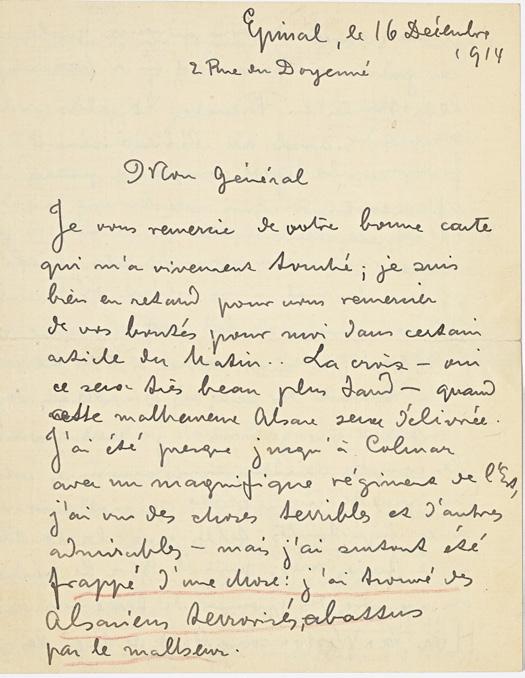 Epinal, le 16 Décembre
1914
2 Rue du Doyenné
Mon Général
Je vous remercie de votre bonne carte
qui m'a vivement touché ; je suis
bien en retard pour vous remercier
de vos bontés pour moi dans certain
article du Matin.. La croix – oui
ce sera très beau plus tard – quand
cette malheureuse Alsace sera délivrée.
J'ai été presque jusqu'à Colmar
avec un magnifique régiment de l'Est,
j'ai vu des choses terribles et d'autres
admirables – mais j'ai surtout été
frappé d'une chose : j'ai trouvé des
Alsaciens terrorisés, abattus
par le malheur.